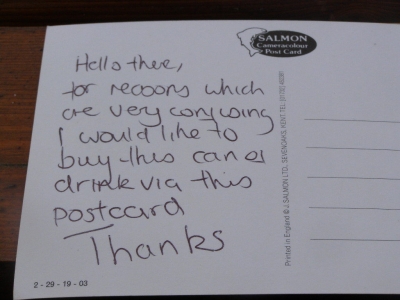 Hello there,
for reasons which
are very confusing
I would like to
buy this can of
drink via this
postcard
Thanks
2 - 29 - 19 - 03
SALMON
Cameracolour
Post Card
Printed in England © J. SALMON LTD., SEVENOAKS, KENT. TEL.